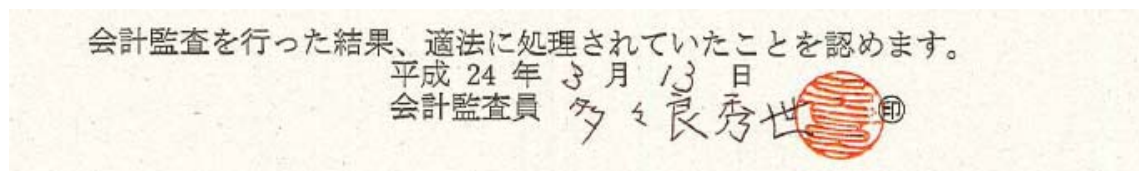 会計監査を行った結果、適法に処理されていたことを認めます。
平成 24 年 3 月 13 日
会計監査員 多々良秀世 ㊞